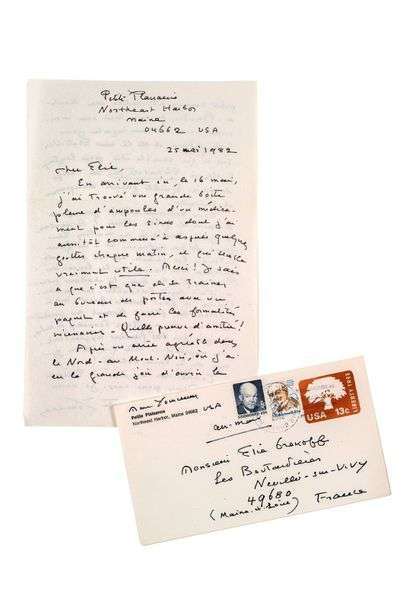 Petite Plaisance
Northeast Harbor
Maine
04662 USA
25 mai 1982
Cher Elie,
En arrivant ici, le 16 mai,
j'ai trouvé une grande boîte
pleine d'ampoules d'un médica-
ment pour les sinus dont j'ai
aussitôt commencé à quelques
gouttes chaque matin, et qui
vraiment utile. Merci! Je sais
ce que c'est que de se traîner
au bureau de postes avec un
paquet et de faire les formalités
. Quelle preuve d'amitié!
Après
Nord
eu la grande joie d'ouvrir la
Petite Plaisance
Northeast Harbor, Maine 04662
USA
LIBERTY TREE
USA 13c
Monsieur Elie Grekoff
Les Boutardières
Neuillé-sur-Vivy
49680
(Maine & Loire) France